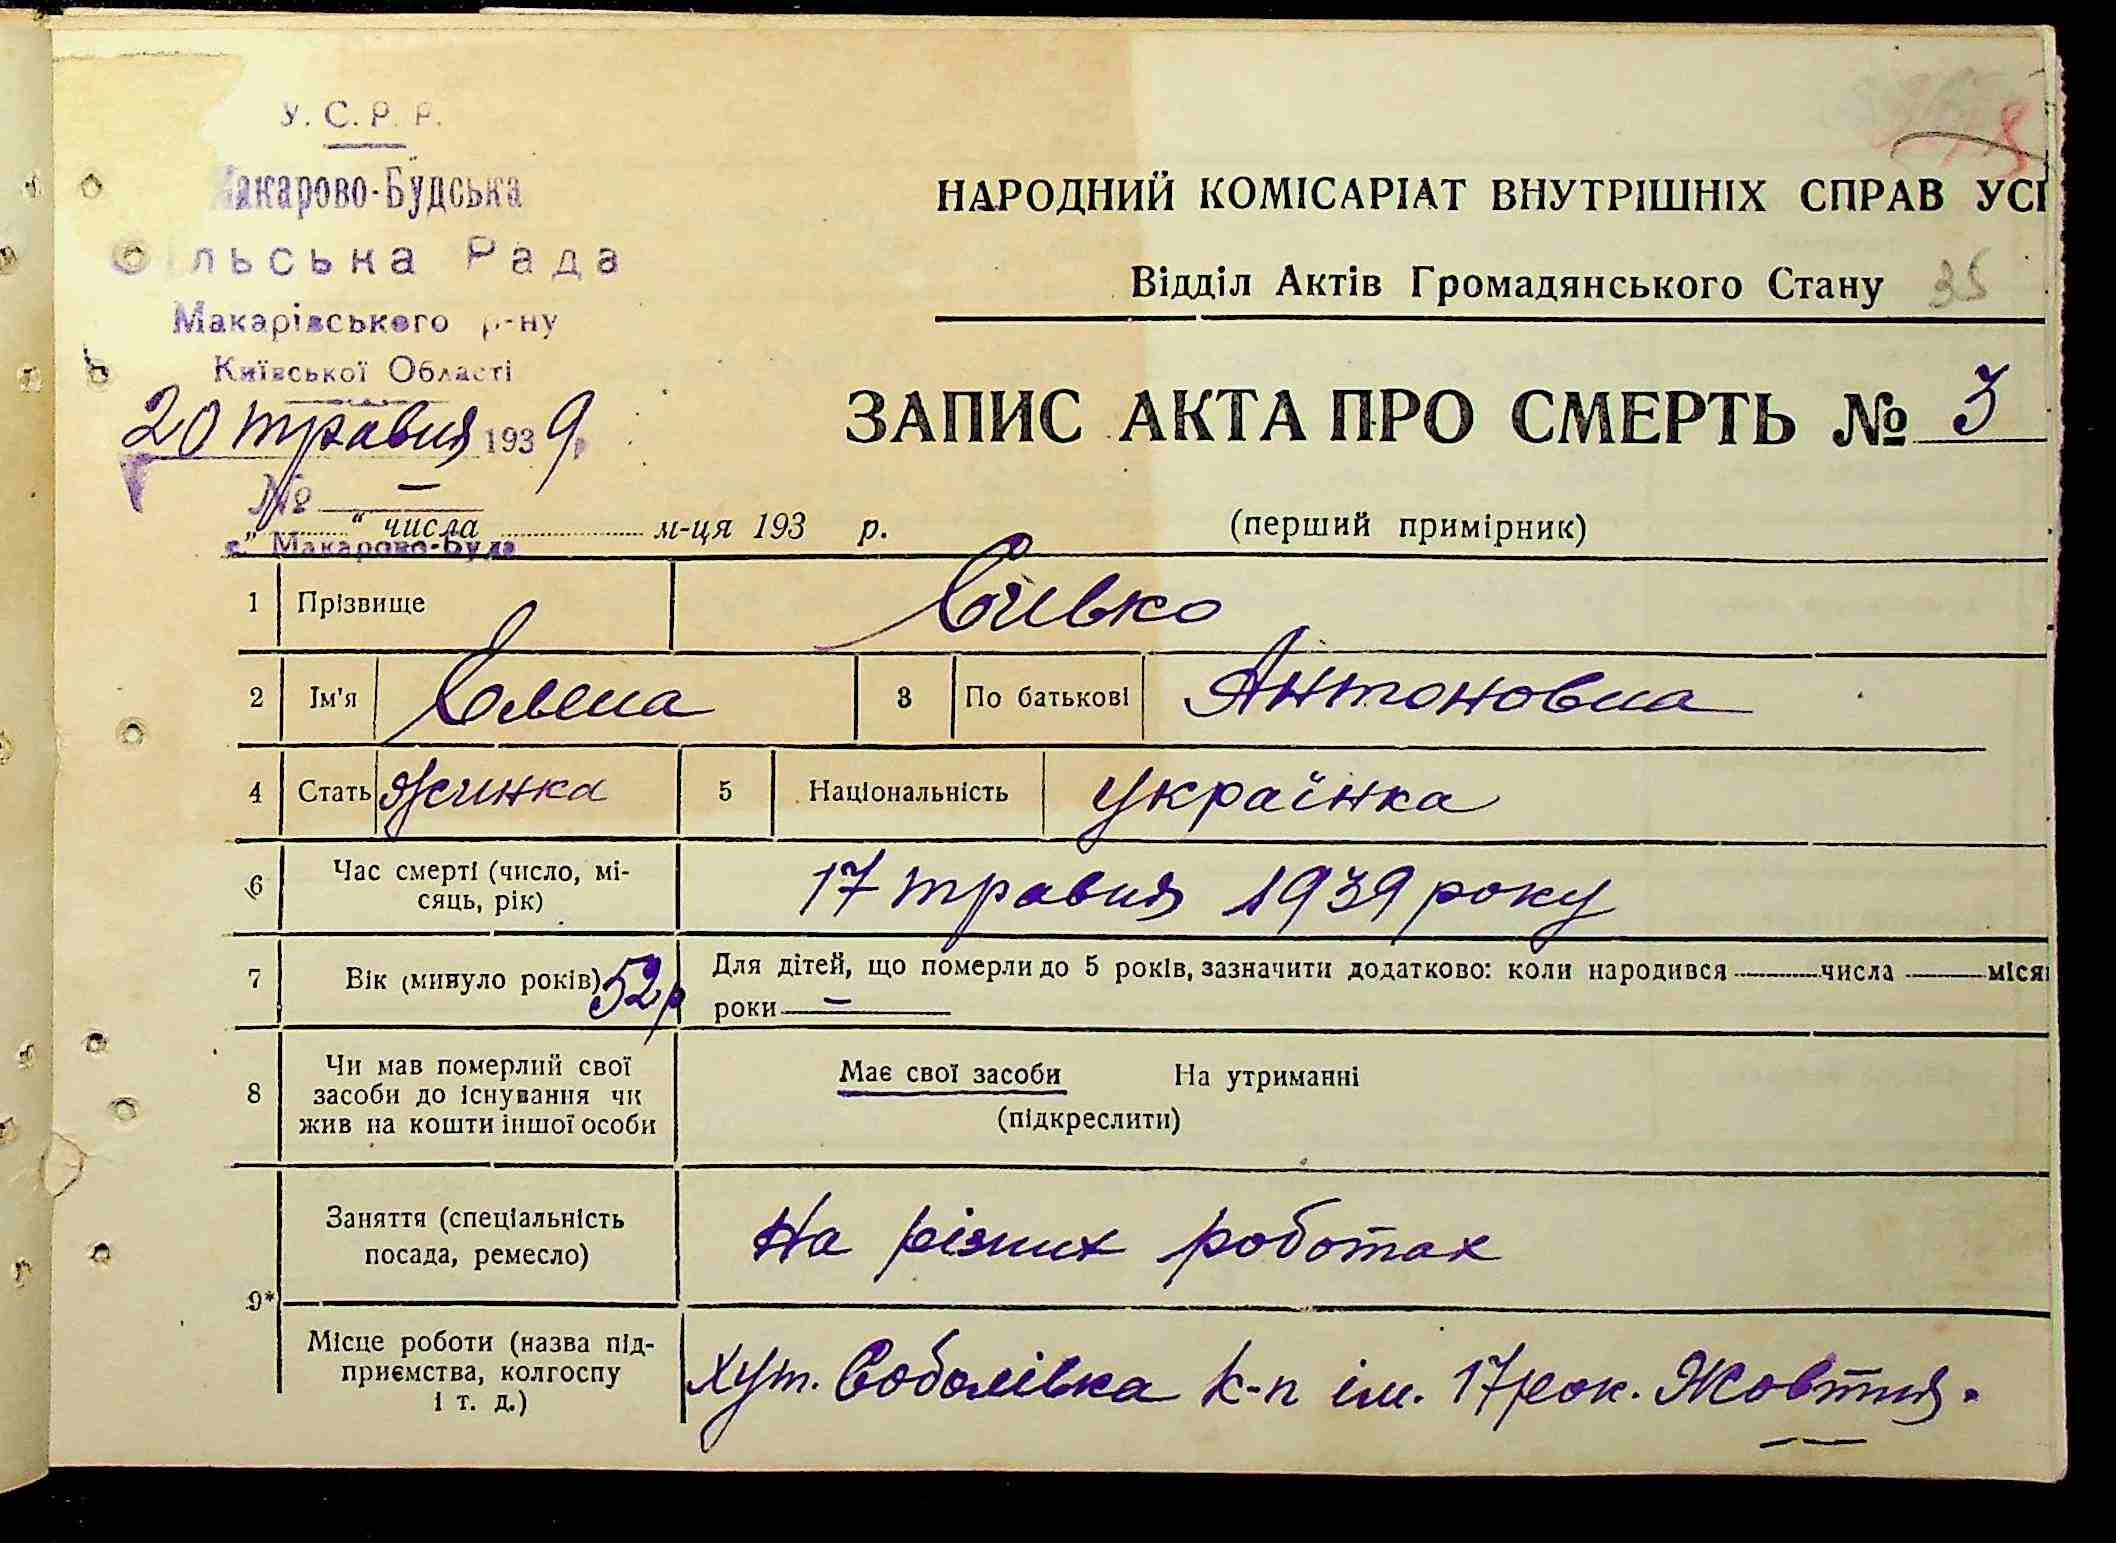 У.С.Р.Р.
Макарово-Будська
Сільська Рада
Макарівського р-ну
Київської Області
20 травня 1939 р
№ —
"......" числа .......... м-ця 193 р.
с. Макарово-Буда
НАРОДНИЙ КОМІСАРІАТ ВНУТРІШНІХ СПРАВ УСР
Відділ Актів Громадянського Стану 35
ЗАПИС АКТА ПРО СМЕРТЬ № 3
(перший примірник)
1 Прізвище Сивко
2 Ім'я Єлена 3 По батькові Антоновна
4 Стать Жинка 5 Національність Українка
6 Час смерті (число, мі-
сяць, рік) 17 травня 1939 року
7 Вік (минуло років) 52 р Для дітей, що померли до 5 років, зазначити додатково: коли народився —— числа —— міся
роки —
8 Чи мав померлий свої
засоби до існування чи
жив на кошти іншої особи
Має свої засоби На утриманні
(підкреслити)
9*
Заняття (спеціальність
посада, ремесло) На різних роботах
Місце роботи (назва під-
приємства, колгоспу
і т. д.) Хут. Соболівка к-п ім. 17 рок. Жовтня.